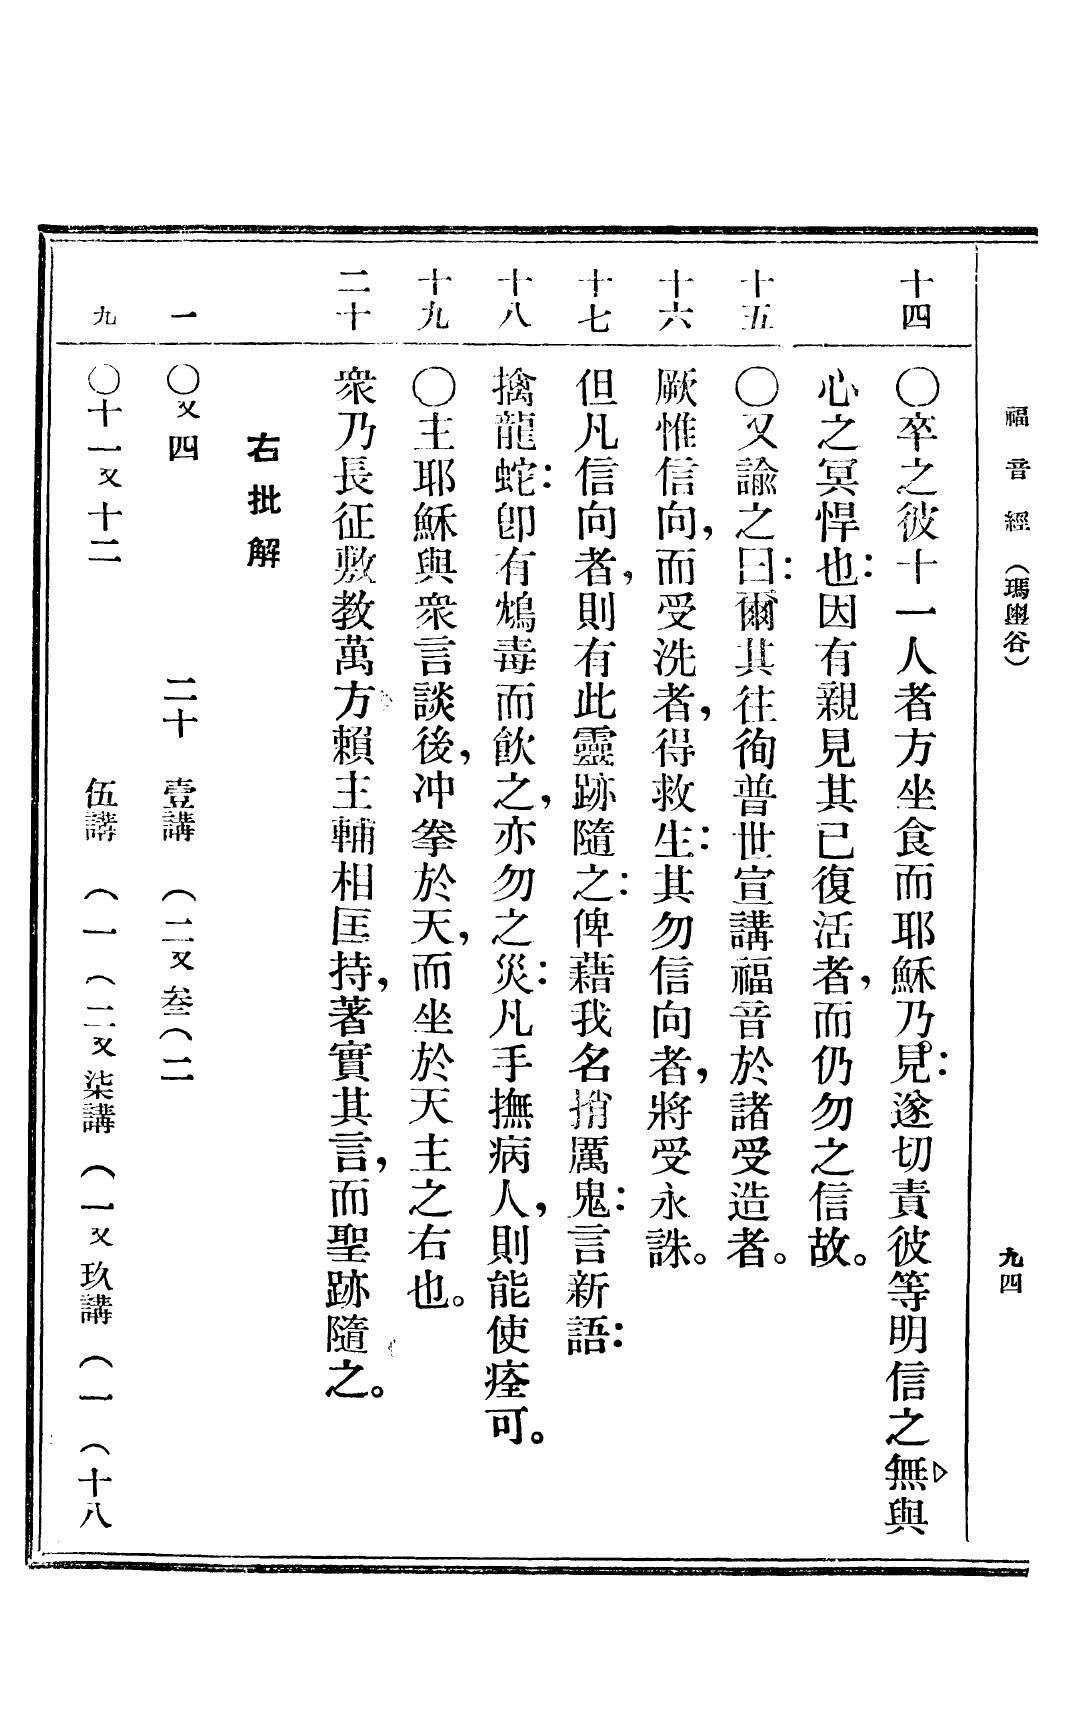 福音經（瑪輿谷） 九四
十四 〇卒之彼十一人者方坐食而耶穌乃見：遂切責彼等明信之無與
心之冥悍也：因有親見其已復活者，而仍勿之信故。
十五 〇又諭之曰：爾其往徇普世宣講福音於諸受造者。
十六 厥惟信向，而受洗者，得救生：其勿信向者，將受永誅。
十七 但凡信向者，則有此靈跡隨之：俾藉我名捎厲鬼：言新語：
十八 擒龍蛇：卽有鴆毒而飮之，亦勿之災：凡手撫病人，則能使痊可。
十九 〇主耶穌與衆言談後，冲舉於天，而坐於天主之右也。
二十 衆乃長征敷教萬方賴主輔相匡持，著實其言，而聖跡隨之。
右批解
一 〇又四 二十 壹講（二又叄（二
九 〇十一又十二 伍講（一（二又柒講（一又玖講（一（十八